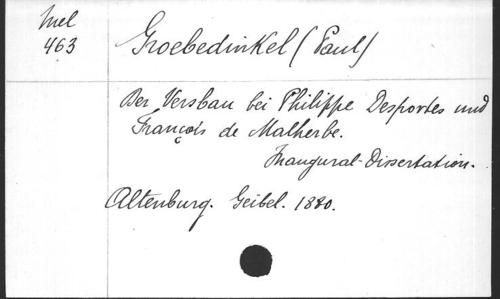 Mel
463
Groebedinkel (Paul)
Der Versbau bei Philippe Desportes und
François de Malherbe.
Inaugural-Dissertation.
Altenburg. Geibel. 1880.